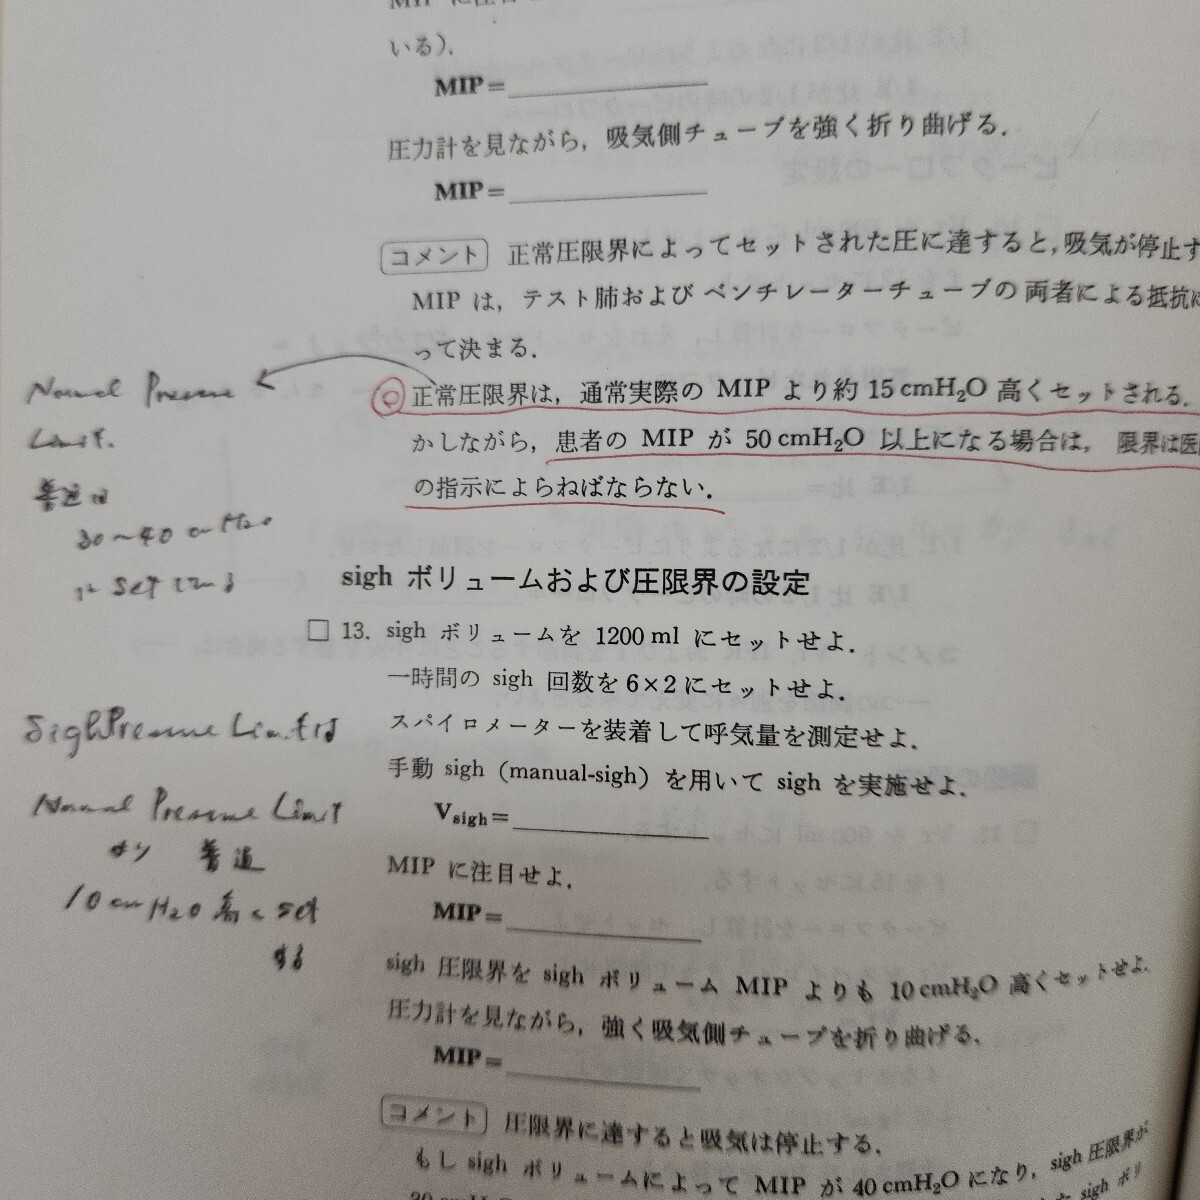 MIP に注目
いる).
MIP=
圧力計を見ながら, 吸気側チューブを強く折り曲げる.
MIP=
コメント 正常圧限界によってセットされた圧に達すると,吸気が停止す
MIP は, テスト肺および ベンチレーターチューブの 両者による抵抗に
って決まる.
正常圧限界は, 通常実際の MIP より約 15 cmH₂O 高くセットされる.
かしながら, 患者の MIP が 50 cmH₂O 以上になる場合は, 限界は医
の指示によらねばならない.
Normal Pressure
Limit.
普通は
30〜40 cmH₂O
に set する
sigh ボリュームおよび圧限界の設定
□ 13. sigh ボリュームを 1200 ml にセットせよ.
一時間の sigh 回数を 6×2 にセットせよ.
スパイロメーターを装着して呼気量を測定せよ.
手動 sigh (manual-sigh) を用いて sigh を実施せよ.
Vsigh=
MIP に注目せよ.
MIP=
sigh 圧限界を sigh ボリューム MIP よりも 10 cmH₂O 高くセットせよ.
圧力計を見ながら, 強く吸気側チューブを折り曲げる.
MIP=
Sigh Pressure Limitは
Normal Pressure Limit
より 普通
10 cmH₂O 高く set
する
コメント 圧限界に達すると吸気は停止する.
もし sigh ボリュームによって MIP が 40 cmH₂O になり, sigh 圧限界が
sigh ボリ